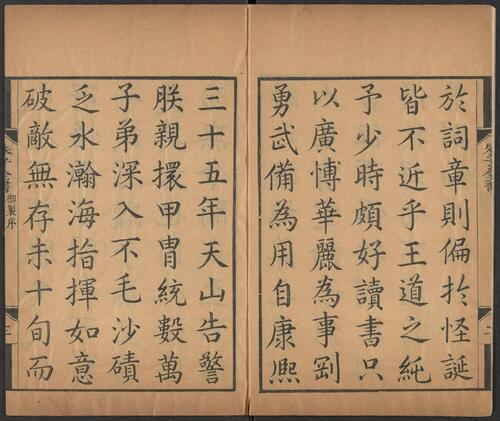 於詞章則偏於怪誕
皆不近乎王道之純
予少時頗好讀書只
以廣博華麗為事剛
勇武備為用自康熙
三十五年天山告警
朕親擐甲冑統數萬
子弟深入不毛沙磧
乏水瀚海指揮如意
破敵無存未十旬而
朱子全書
二
朱子全書 御製序
三